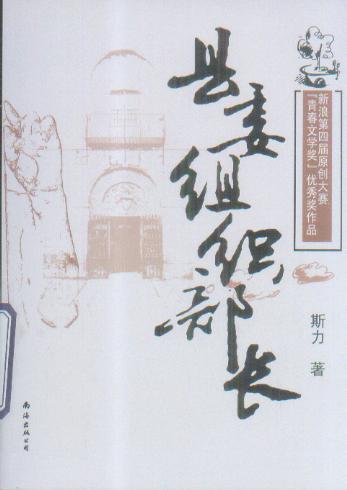 县委组织部长
新浪第四届原创大赛
「青春文学奖」优秀奖作品
斯力 著
南海出版公司